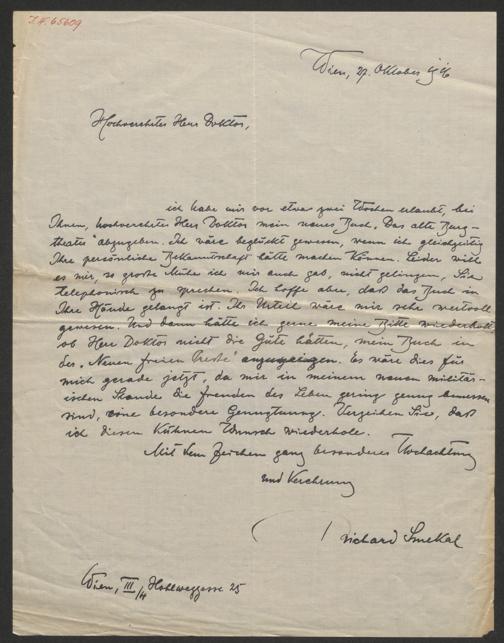 I.N. 65609
Wien, 27. Oktober 1916
Hochverehrter Herr Doktor,
ich habe mir vor etwa zwei Wochen erlaubt, bei
Ihnen, hochverehrter Herr Doktor mein neues Buch „Das alte Burg-
theater" abzugeben. Ich wäre beglückt gewesen, wenn ich gleichzeitig
Ihre persönliche Bekanntschaft hätte machen können. Leider wollt
es mir, so große Mühe ich mir auch gab, nicht gelingen, Sie
telephonisch zu sprechen. Ich hoffe aber, daß das Buch in
Ihre Hände gelangt ist. Ihr Urteil wäre mir sehr wertvoll
gewesen. Und dann hätte ich gerne meine Bitte wiederholt,
ob Herr Doktor nicht die Güte hätten, mein Buch in
der „Neuen freien Presse" anzuzeigen. Es wäre dies für
mich gerade jetzt, da mir in meinem neuen militär-
ischen Stande die Freuden des Leben gering genug bemessen
sind, eine besondere Genugtuung. Verzeihen Sie, daß
ich diesen kühnen Wunsch wiederhole.
Mit dem Zeichen ganz besonderer Hochachtung
und Verehrung
Richard Smekal
Wien, III/4 Hohlweggasse 25